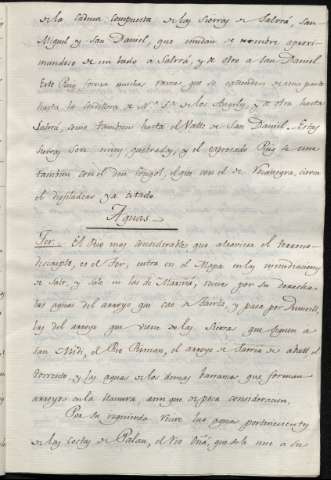 de la cadena compuesta de las sierras de Salrrá, San
Miguel y San Daniel, que mudan de nombre aproxi-
mandose de un lado a Salrrá, y de otro a San Daniel
Este Puig forma muchos ramos que se estienden de una parte
hasta la Cordillera de Nª Sª de los Angeles, y de otra hasta
Salrrá, como tambien hasta el Valle de San Daniel. Estas
sierras son muy quebradas, y el expresado Puig se une
tambien con el den, que con el de, cierra
el desfiladero ya citado
Aguas
Ter. El Rio mas considerable que atraviesa el terreno
descripto, es el Ter, entra en el Mapa en las inmediaciones
de Salt, y sale en las de Mariñá, recive por su derecha
las aguas del arroyo que cae a, y pasa por,
las del arroyo que viene de las Sierras que siguen a
San Midi, el Rio, el arroyo de Sarria de abajo, el
torrente y las aguas de los demas barrancos que forman
arroyos en la llanura, aunque de poca consideracion.
Por su izquierda recive las aguas pertenecientes
de las Costas de Palau, el Rio Oñá, que se le une a su